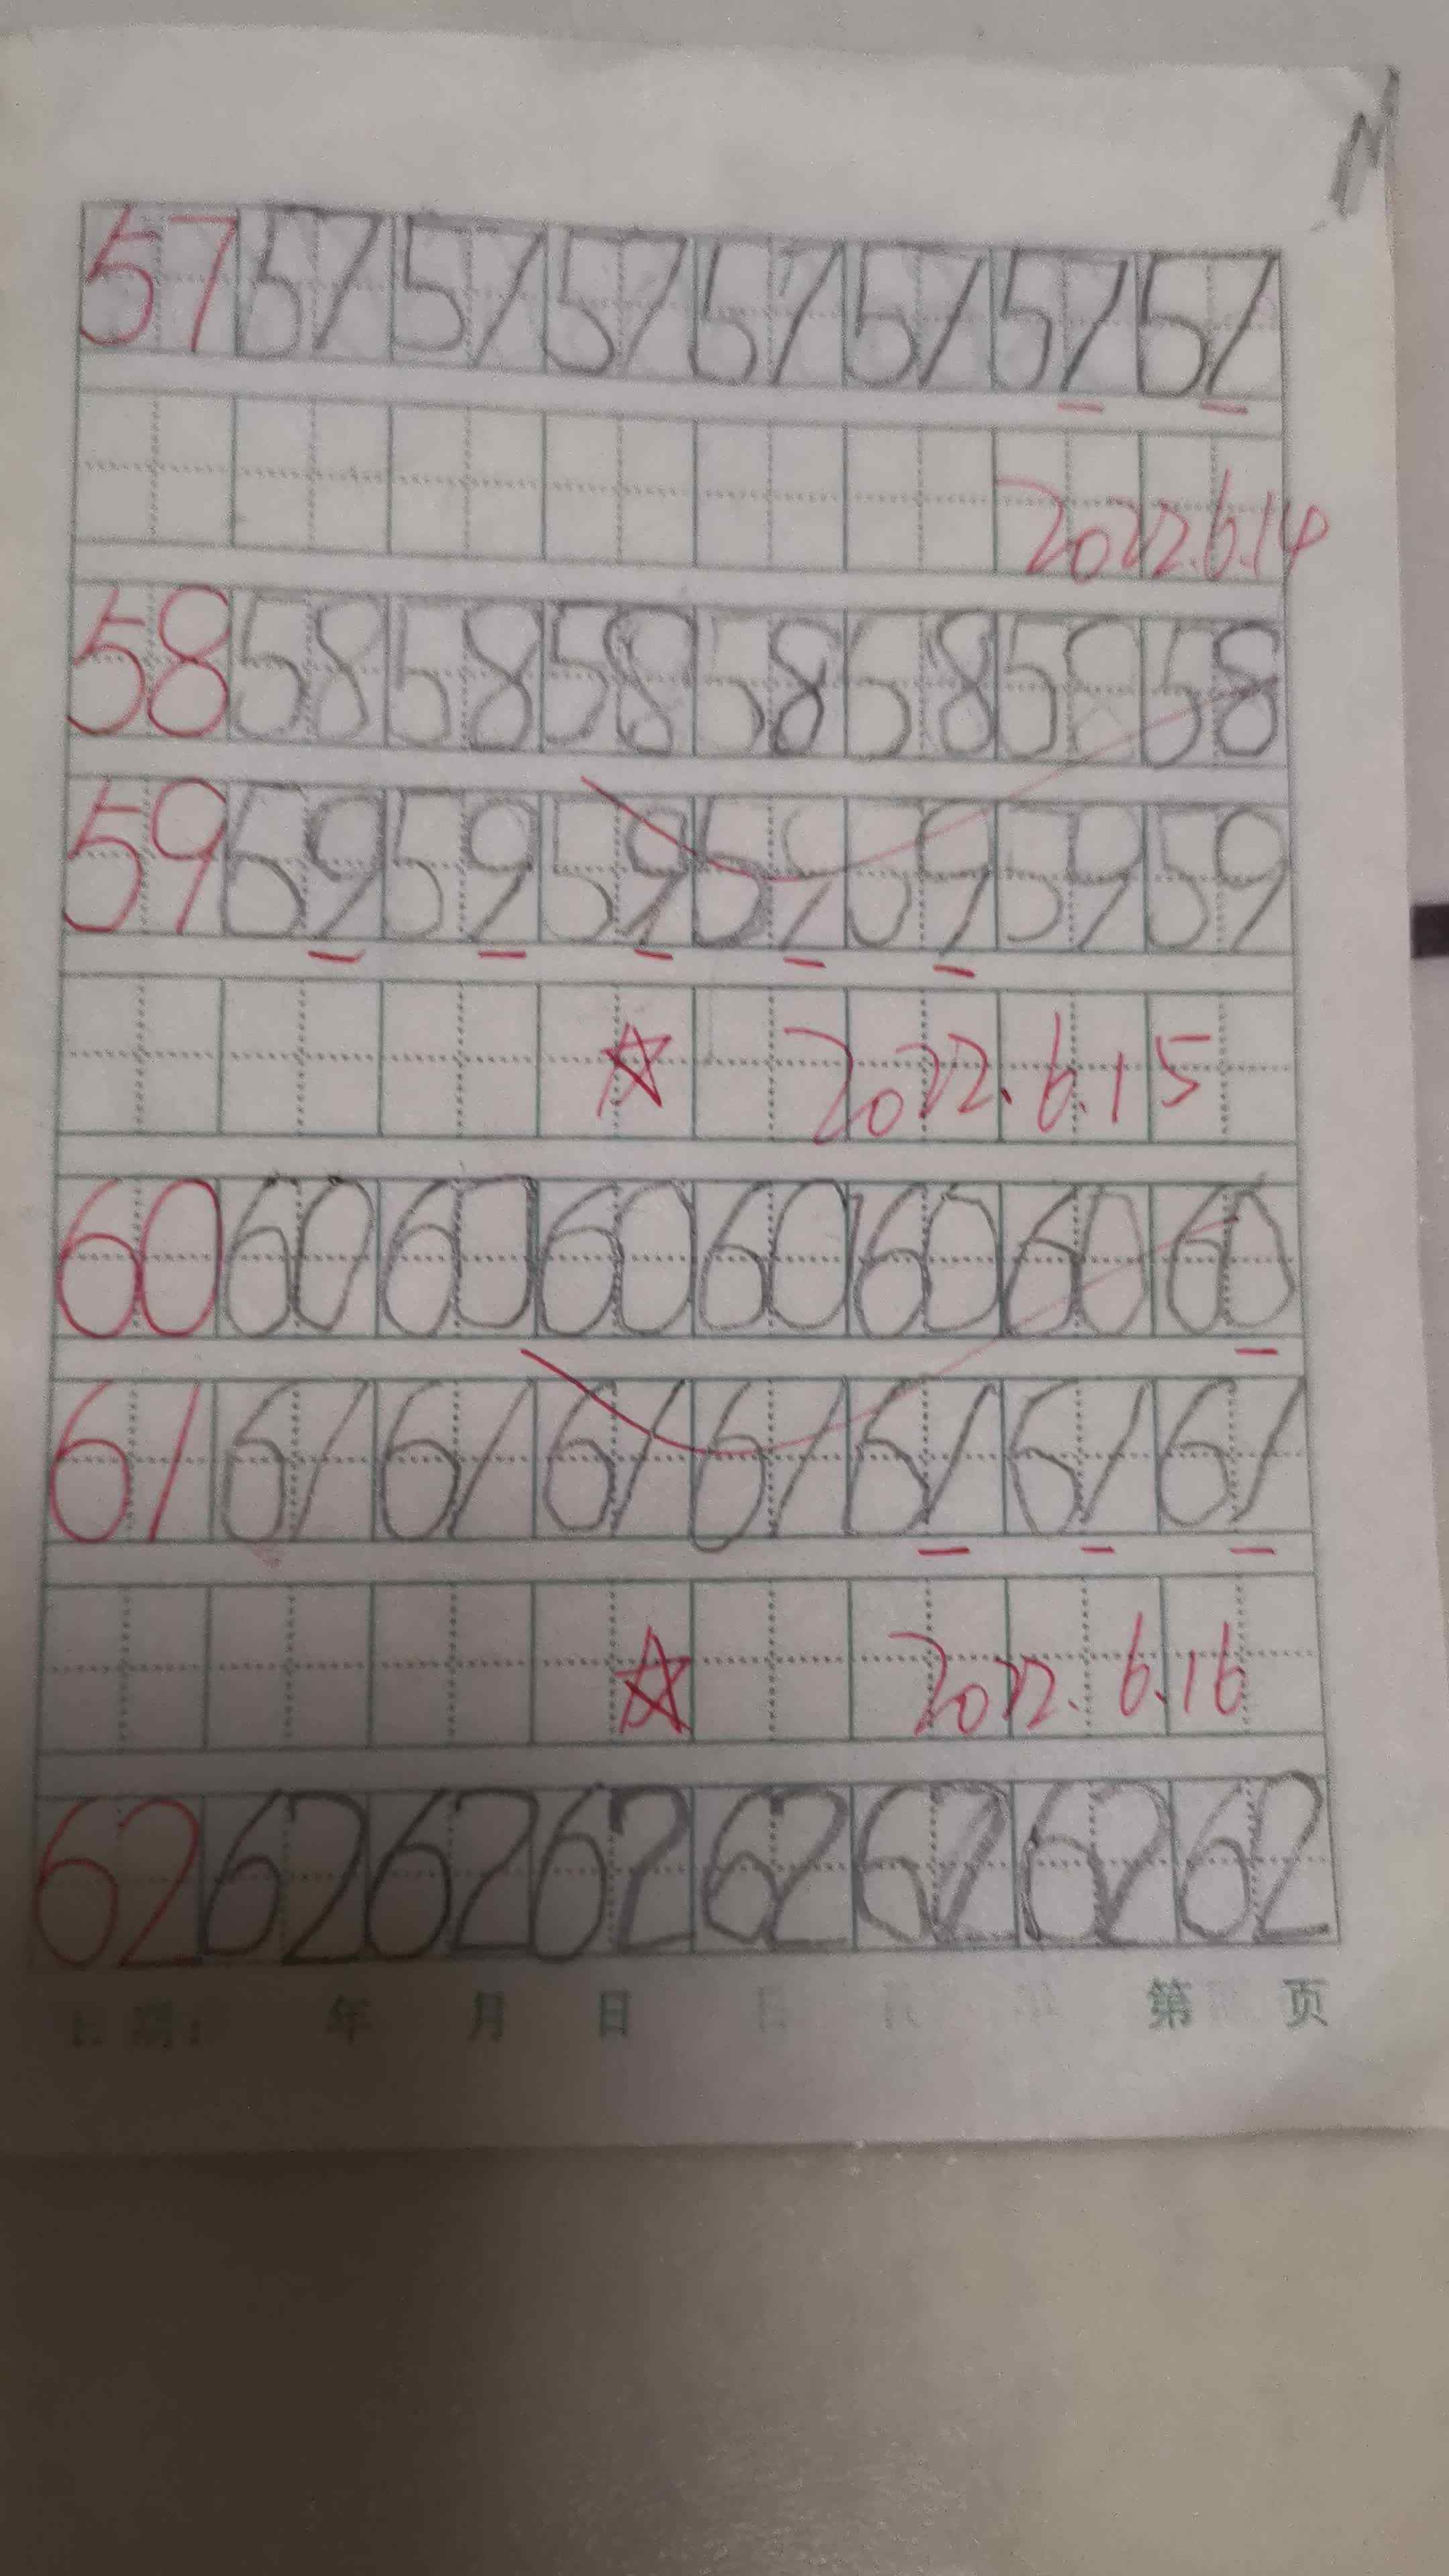 57 57 57 57 57 57 57 57
2022.6.14
58 58 58 58 58 58 58 58
59 59 59 59 59 59 59 59
2022.6.15
60 60 60 60 60 60 60 60
61 61 61 61 61 61 61 61
2022.6.16
62 62 62 62 62 62 62 62
年 月 日 第 页